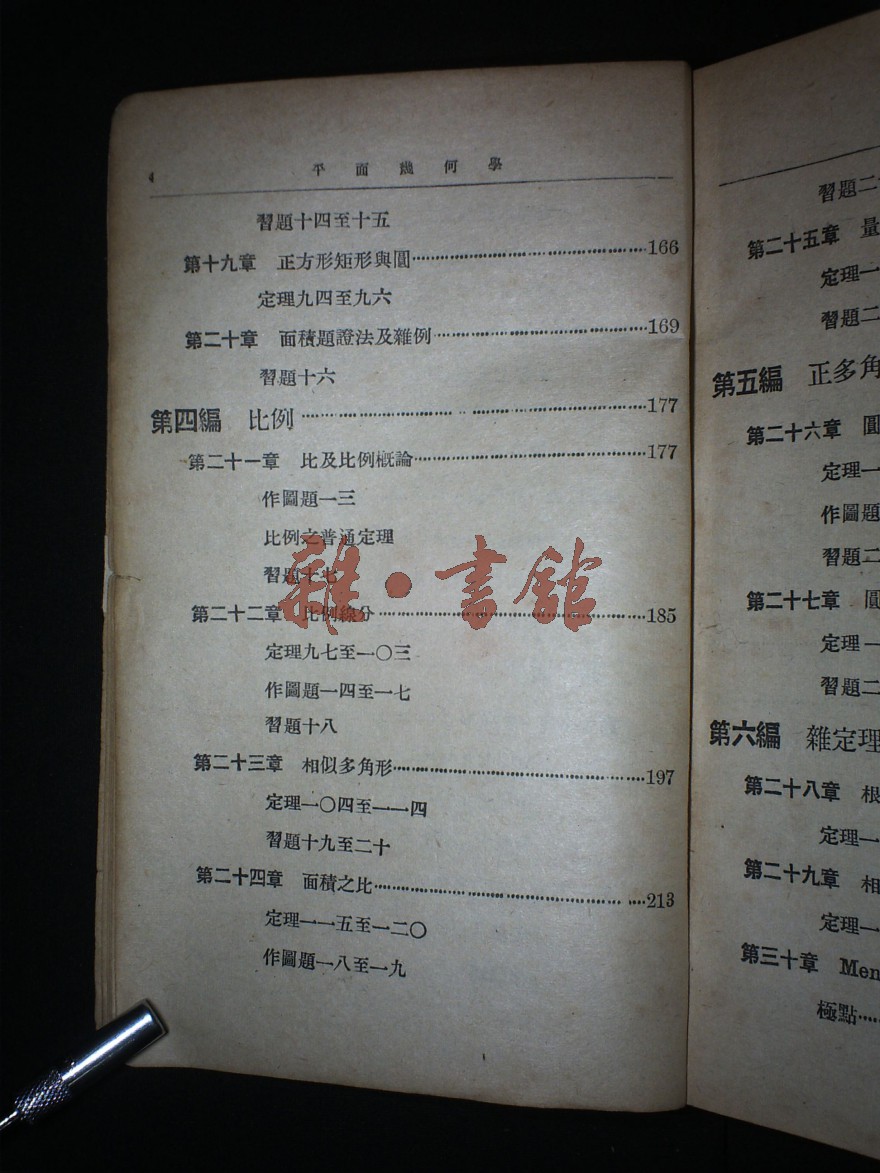 4 平面幾何學
習題十四至十五
第十九章 正方形矩形與圓……166
定理九四至九六
第二十章 面積題證法及雜例……169
習題十六
第四編 比例……177
第二十一章 比及比例概論……177
作圖題一三
比例之普通定理
習題十七
雜·書館
第二十二章 比例線分……185
定理九七至一〇三
作圖題一四至一七
習題十八
第二十三章 相似多角形……197
定理一〇四至一一四
習題十九至二十
第二十四章 面積之比……213
定理一一五至一二〇
作圖題一八至一九
習題二
第二十五章 量
定理一
習題二
第五編 正多角
第二十六章 圓
定理一
作圖題
習題二
第二十七章 圓
定理一
習題二
第六編 雜定理
第二十八章 根
定理一
第二十九章 相
定理一
第三十章 Men
極點……